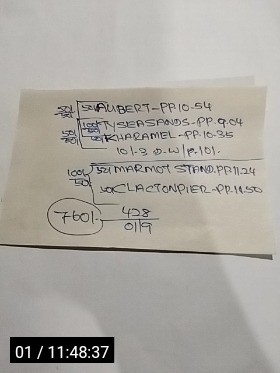 50/50 50/ AUBERT-PP.10-54
100/50 TYSEASANDS-PP.9.04
50/50 50/ KHARAMEL-PP.10-35
10/-3 D-W/P.101.
100/50 50/ MARMOT STAND.PP.11.24
50/ CLACTONPIER-PP.11.50
7601. 428
0119
01 / 11:48:37